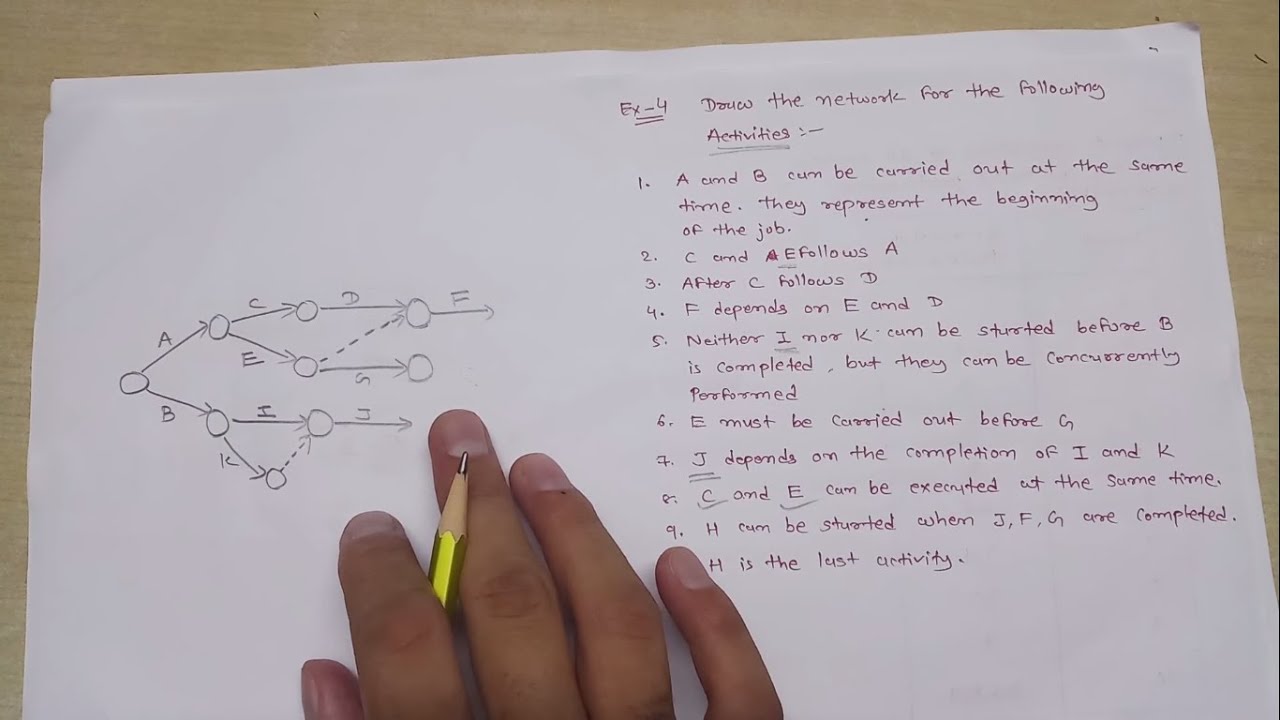 Ex-4 Draw the network for the following
Activities :-
1. A and B can be carried out at the same
time. they represent the beginning
of the job.
2. C and E follows A
3. After C follows D
4. F depends on E and D
5. Neither I nor K can be started before B
is completed, but they can be concurrently
Performed
6. E must be carried out before G
7. J depends on the completion of I and K
8. C and E can be executed at the same time.
9. H can be started when J, F, G are completed.
H is the last activity.
C D F
A
E
G
B I J
K